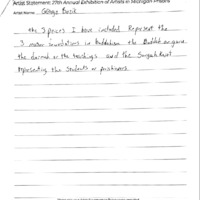 Artist Statement: 27th Annual Exhibition of Artists in Michigan Prisons
Artist Name: George
the 3 pieces I have included Represent the
3 in Buddhism the Buddah or guru
the darma or the teachings and the Sangha Knot
representing the students or practitioners.